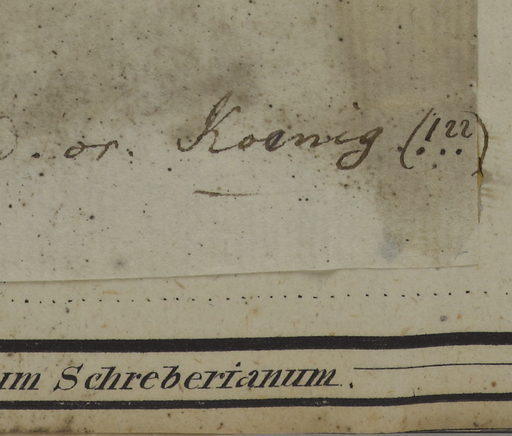 . or. Koenig (122)
um Schreberianum.